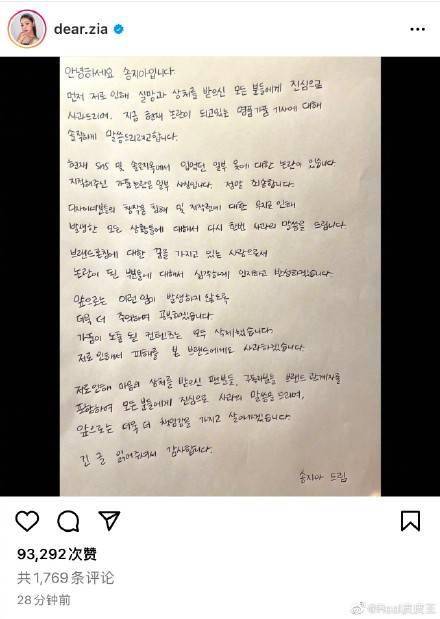 dear.zia
안녕하세요 송지아입니다.
먼저 저로 인해 실망과 상처를 받으신 모든 분들에게 진심으로
사과드리며, 지금 현재 논란이 되고있는 명품가품 기사에 대해
솔직하게 말씀드리려고합니다.
현재 SNS 및 솔로지옥에서 입었던 일부 옷에 대한 논란이 있습니다.
지적해주신 가품논란은 일부 사실입니다. 정말 죄송합니다.
디자이너분들의 창작물 침해 및 저작권에 대한 무지로 인해
발생한 모든 상황들에 대해서 다시 한번 사과의 말씀을 드립니다.
브랜드론칭에 대한 꿈을 가지고 있는 사람으로써
논란이 된 부분에 대해서 심각하게 인지하고 반성하겠습니다.
앞으로는 이런 일이 발생하지 않도록
더욱 더 주의하며 공부하겠습니다.
가품이 노출 된 컨텐츠는 모두 삭제했습니다.
저로 인해서 피해를 본 브랜드에게도 사과하겠습니다.
저로인해 마음의 상처를 받으신 팬분들, 구독자분들 브랜드 관계자를
포함하여 모든분들에게 진심으로 사과의 말씀을 드리며,
앞으로는 더욱 더 책임감을 가지고 살아가겠습니다.
긴 글 읽어주셔서 감사합니다.
송지아 드림
93,292次赞
共1,769条评论
28分钟前